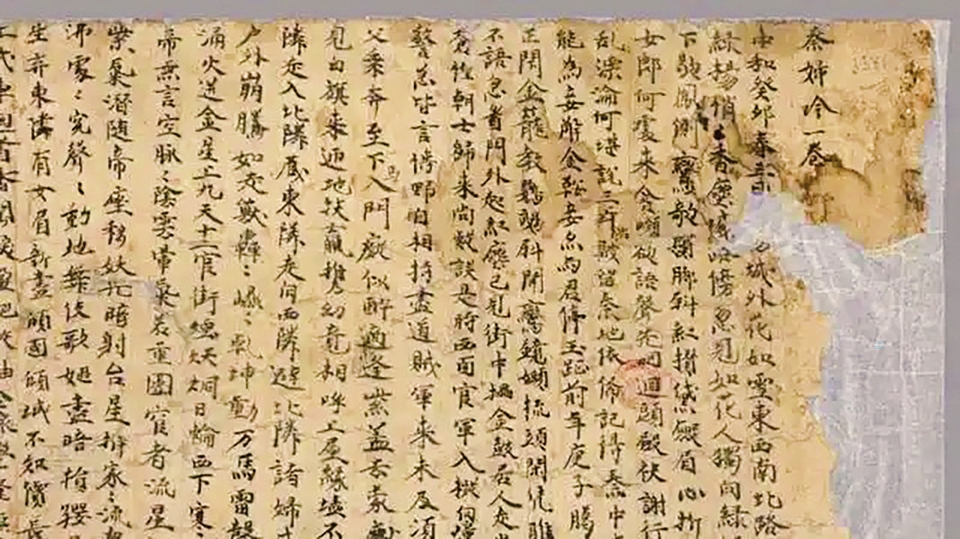 秦婦吟一卷
中和癸卯春三月城外花如雪東西南北路
綠楊悄〻香塵滅路傍忽見如花人獨向綠
下歇鳳側鸞欹鬢脚斜紅攢黛斂眉心折
女郎何處來含嚬欲語聲先咽迴頭斂袂謝行
亂漂淪何堪說三年陷賊留秦地依俙記得秦中
能為妾解金鞍妾亦與君停玉趾前年庚子臘
正閇金籠教鸚鵡斜開鸞鏡嬾梳頭閑凭雕
不語忽看門外起紅塵已見街中擂金鼓居人走出
蒼惶朝士歸來尚疑誤是時西面官軍入擬向潼
警急皆言博野自相持盡道賊軍來未及須
父乘奔至下馬入門癡似醉適逢紫蓋去蒙塵
見白旗來迊地扶羸携幼竟相呼上屋緣墻不
隣走入北隣藏東隣走向西隣避北隣諸婦
戶外崩騰如走獸轟〻崐〻乾坤動万馬雷聲
涌火迸金星上九天十二官街煙烘烔日輪西下寒〻
帝無言空脉〻陰雲暈氣若重圍宦者流星
紫氣潛隨帝座移妖光暗射台星拆家〻流血
沸處〻冤聲〻動地舞伎歌姬盡暗捐嬰
生弃東隣有女眉新畫傾國傾城不知價長